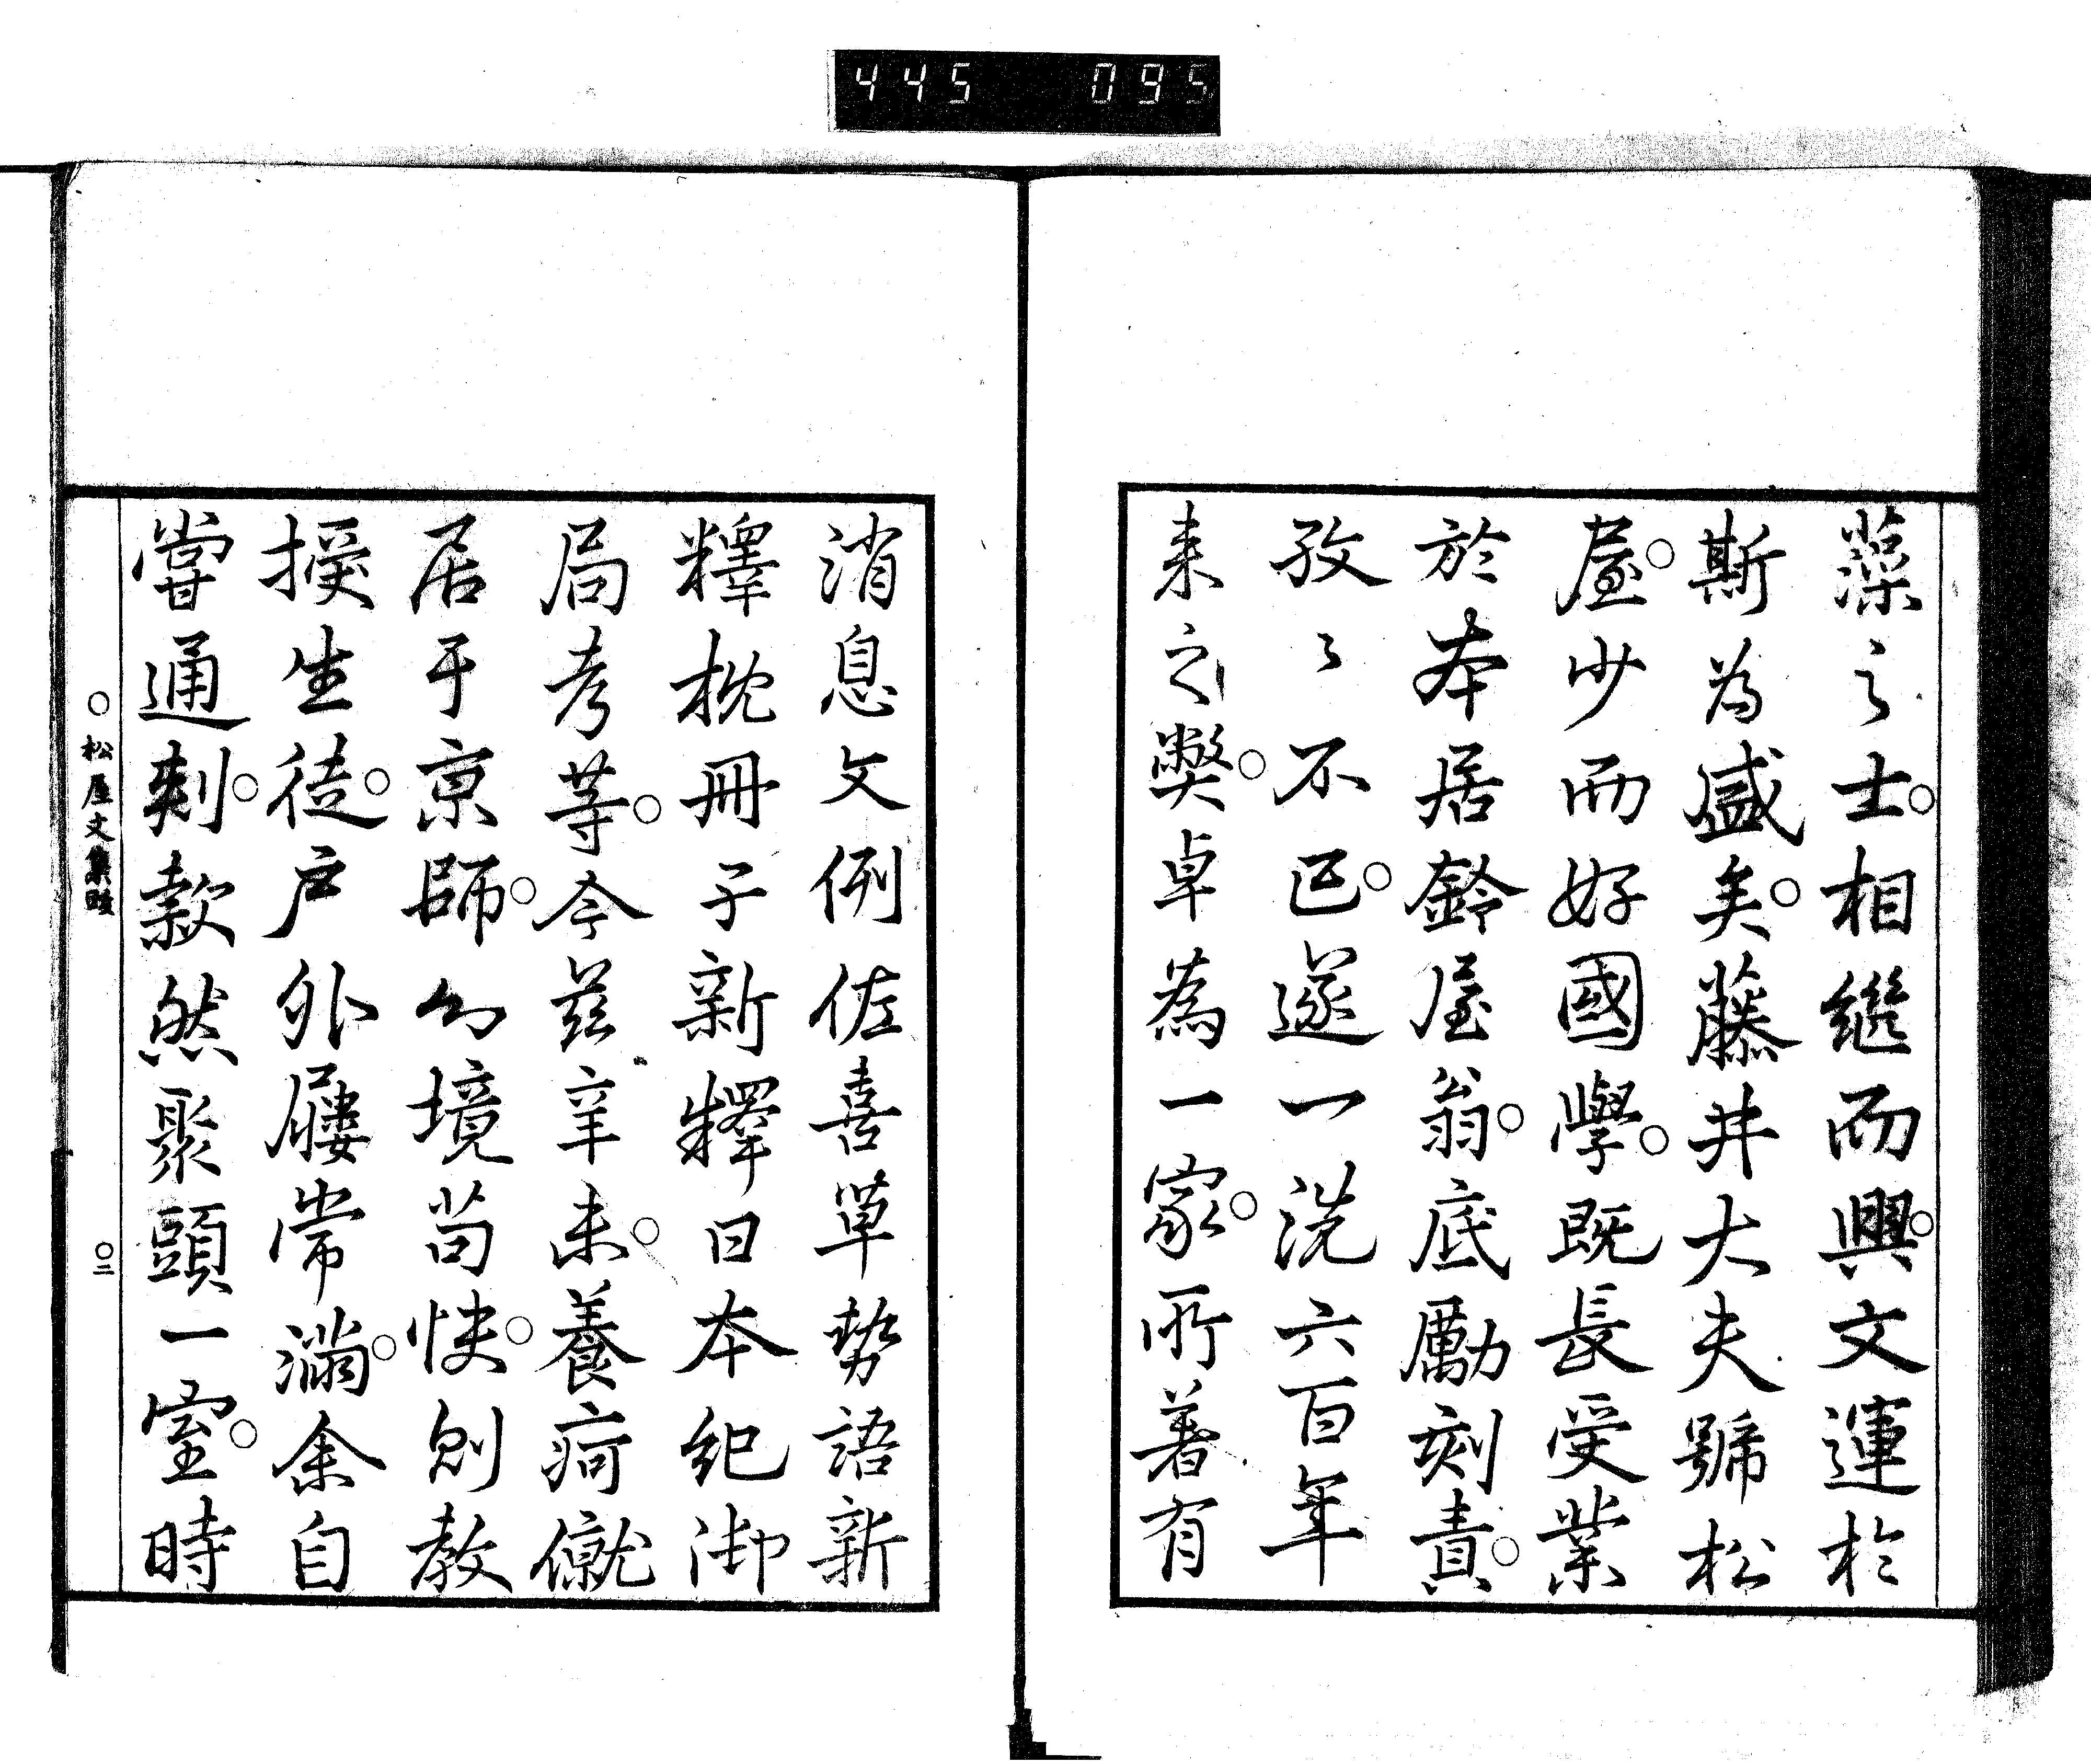 445 095
藻之士。相継而興。文運於
斯為盛矣。藤井大夫號松
屋。少而好國學。既長受業
於本居鈴屋翁。底勵刻責。
孜々不已。遂一洗六百年
来之弊。卓為一家。所著有
消息文例佐喜草勢語新
釋枕冊子新釋日本紀御
局考等。今茲辛未。養痾僦
居于京師。幻境苟快。則教
授生徒。戸外屨常満。余自
嘗通刺。款然聚頭一室。時
○松屋文集跋
○二